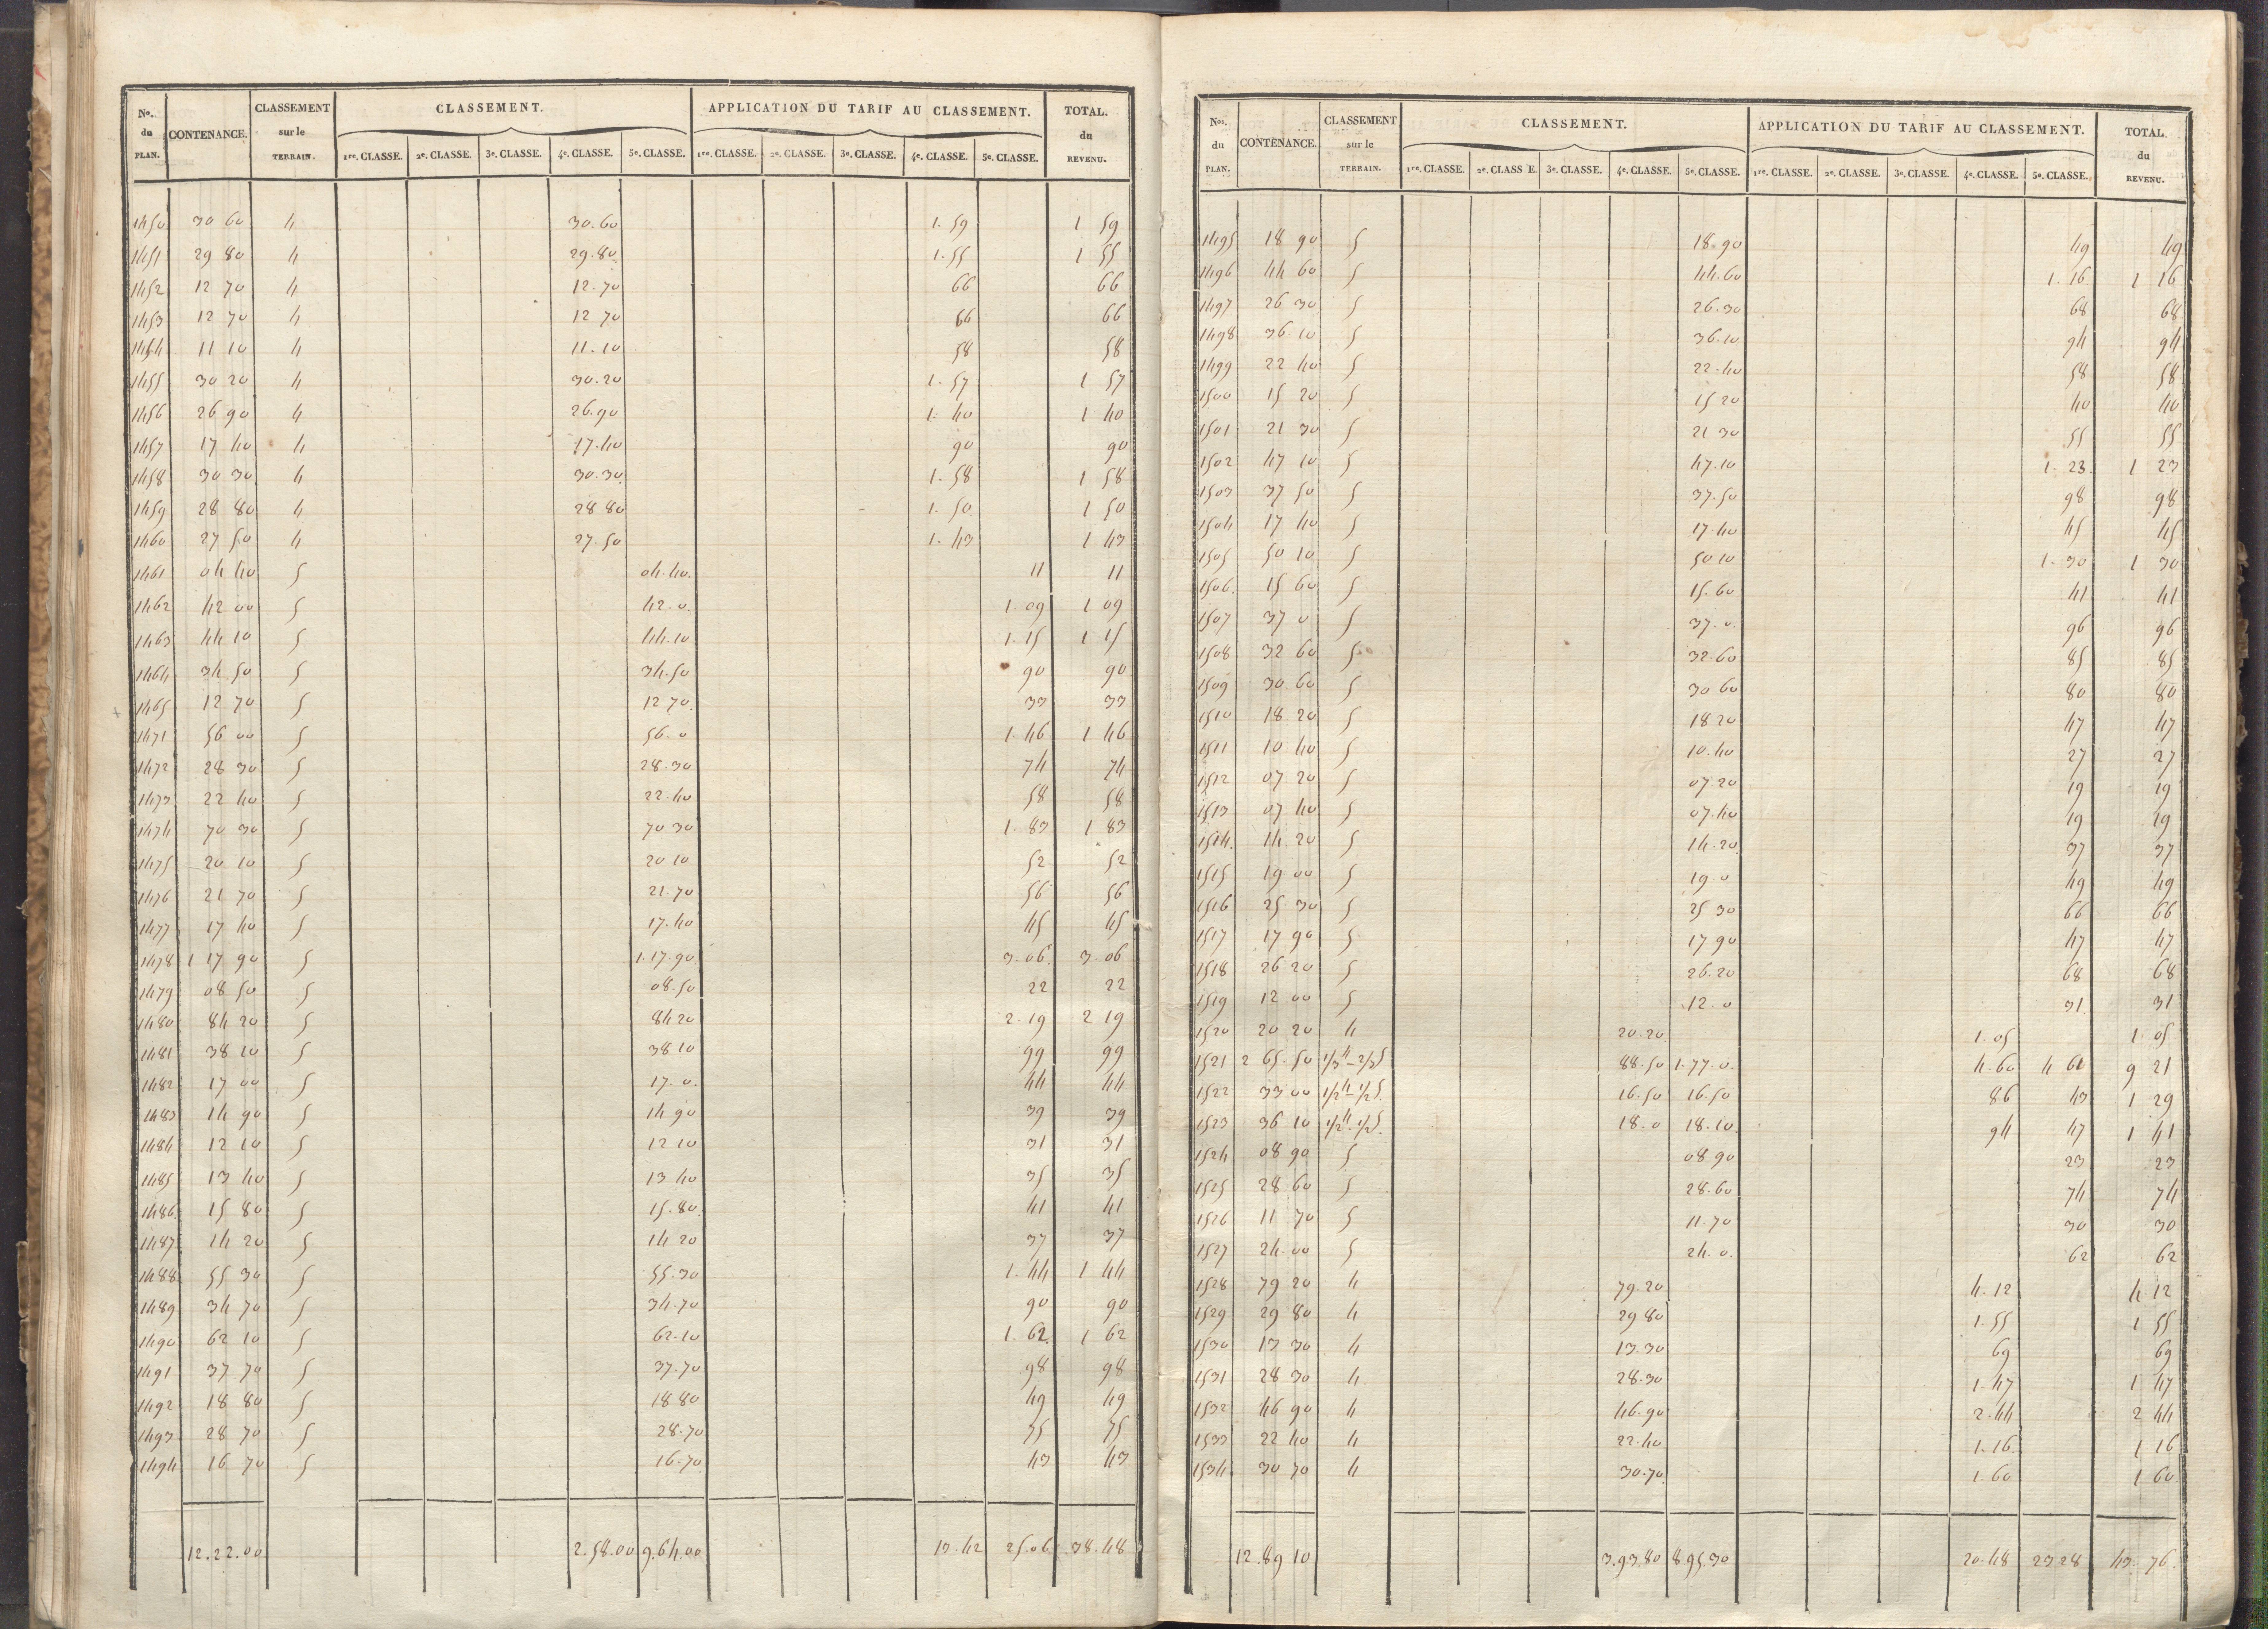 Nos. du PLAN. | CONTENANCE. | CLASSEMENT sur le TERRAIN. | CLASSEMENT. | APPLICATION DU TARIF AU CLASSEMENT. | TOTAL. du REVENU.
1re. CLASSE. | 2e. CLASSE. | 3e. CLASSE. | 4e. CLASSE. | 5e. CLASSE. | 1re. CLASSE. | 2e. CLASSE. | 3e. CLASSE. | 4e. CLASSE. | 5e. CLASSE.
1450 30 60 4 30.60 1.59 1 59
1451 29 80 4 29.80 1.55 1 55
1452 12 70 4 12.70 66 66
1453 12 70 4 12 70 66 66
1454 11 10 4 11.10 58 58
1455 30 20 4 30.20 1.57 1 57
1456 26 90 4 26.90 1.40 1 40
1457 17 40 4 17.40 90 90
1458 30 30 4 30.30 1.58 1 58
1459 28 80 4 28 80 1.50 1 50
1460 27 50 4 27.50 1.43 1 43
1461 04 40 5 04.40 11 11
1462 42 00 5 42.0 1.09 1 09
1463 44 10 5 44.10 1.15 1 15
1464 34 50 5 34.50 90 90
1465 12 70 5 12 70 33 33
1471 56 00 5 56.0 1.46 1 46
1472 28 30 5 28.30 74 74
1473 22 40 5 22.40 58 58
1474 70 30 5 70 30 1.83 1 83
1475 20 10 5 20 10 52 52
1476 21 70 5 21.70 56 56
1477 17 40 5 17.40 45 45
1478 1 17 90 5 1.17.90 3.06 3.06
1479 08 50 5 08.50 22 22
1480 84 20 5 84 20 2.19 2 19
1481 38 10 5 38 10 99 99
1482 17 00 5 17.0 44 44
1483 14 90 5 14 90 39 39
1484 12 10 5 12 10 31 31
1485 13 40 5 13 40 35 35
1486 15 80 5 15.80 41 41
1487 14 20 5 14 20 37 37
1488 55 30 5 55.30 1.44 1 44
1489 34 70 5 34.70 90 90
1490 62 10 5 62.10 1.62 1 62
1491 37 70 5 37.70 98 98
1492 18 80 5 18 80 49 49
1493 28 70 5 28.70 75 75
1494 16 70 5 16.70 43 43
12.22.00 2.58.00 9.64.00 13.42 25.06 38.48
Nos. du PLAN. | CONTENANCE. | CLASSEMENT sur le TERRAIN. | CLASSEMENT. | APPLICATION DU TARIF AU CLASSEMENT. | TOTAL. du REVENU.
1re. CLASSE. | 2e. CLASS E. | 3e. CLASSE. | 4e. CLASSE. | 5e. CLASSE. | 1re. CLASSE. | 2e. CLASSE. | 3e. CLASSE. | 4e. CLASSE. | 5e. CLASSE.
1495 18 90 5 18.90 49 49
1496 44 60 5 44.60 1.16 1 16
1497 26 30 5 26.30 68 68
1498 36 10 5 36.10 94 94
1499 22 40 5 22.40 58 58
1500 15 20 5 15 20 40 40
1501 21 30 5 21 30 55 55
1502 47 10 5 47.10 1.23 1 23
1503 37 50 5 37.50 98 98
1504 17 40 5 17.40 45 45
1505 50 10 5 50 10 1.30 1 30
1506 15 60 5 15.60 41 41
1507 37 0 5 37.0 96 96
1508 32 60 5 32.60 85 85
1509 30 60 5 30 60 80 80
1510 18 20 5 18 20 47 47
1511 10 40 5 10.40 27 27
1512 07 20 5 07.20 19 19
1513 07 40 5 07.40 19 19
1514 14 20 5 14.20 37 37
1515 19 00 5 19.0 49 49
1516 25 30 5 25 30 66 66
1517 17 90 5 17 90 47 47
1518 26 20 5 26.20 68 68
1519 12 00 5 12.0 31 31
1520 20 20 4 20.20 1.05 1 05
1521 2 65.50 1/3 4 - 2/3 5 88.50 1.77.0 4.60 4 61 9 21
1522 33 00 1/2 4 - 1/2 5 16.50 16.50 86 43 1 29
1523 36 10 1/2 4 - 1/2 5 18.0 18.10 94 47 1 41
1524 08 90 5 08 90 23 23
1525 28 60 5 28.60 74 74
1526 11 70 5 11.70 30 30
1527 24.00 5 24.0 62 62
1528 79 20 4 79.20 4.12 4 12
1529 29 80 4 29 80 1.55 1 55
1530 13 30 4 13.30 69 69
1531 28 30 4 28.30 1.47 1 47
1532 46 90 4 46.90 2.44 2 44
1533 22 40 4 22.40 1.16 1 16
1534 30 70 4 30.70 1.60 1 60
12.89 10 3.93.80 8 95.30 20.48 23 28 43.76